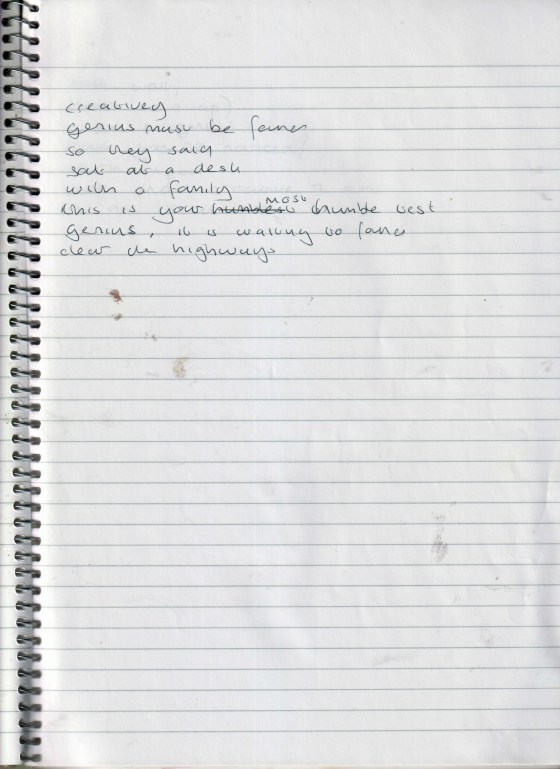 creatively
genius must be
so they said
sat at a desk
with a family
this is your humblest most humble test
genius, it is waiting to
clear the highways